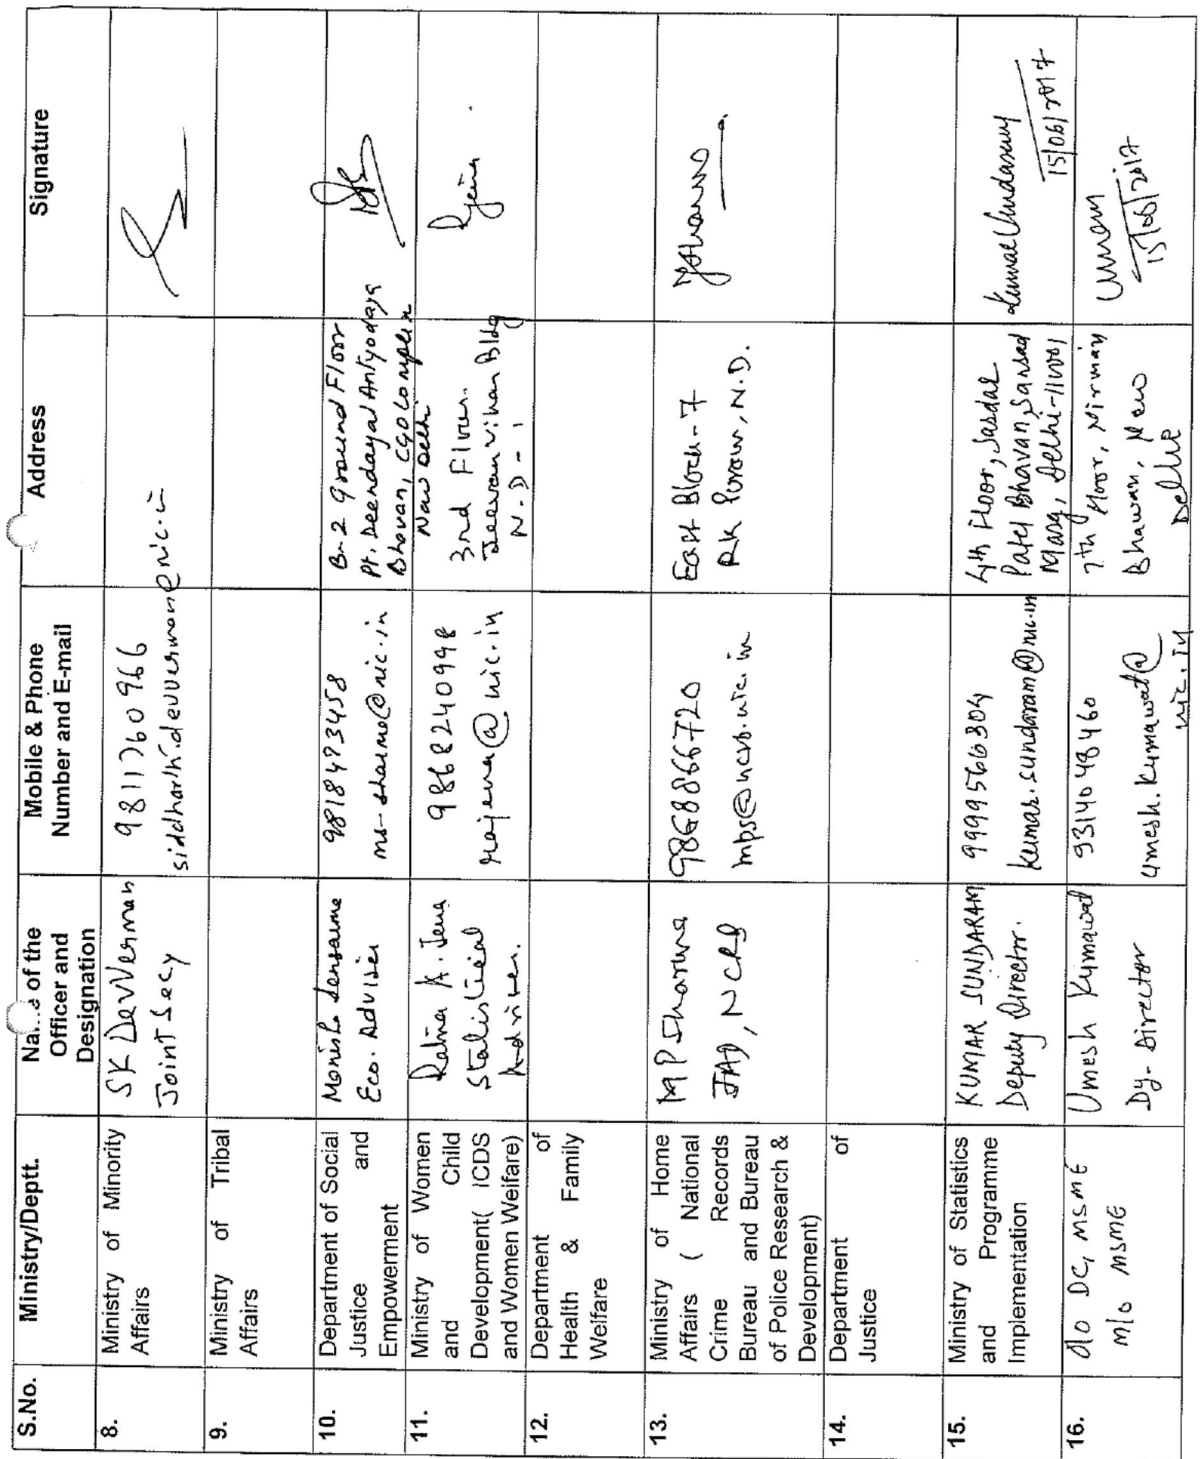 S.No.
Ministry/Deptt.
Officer and
Designation
Mobile & Phone
Number and E-mail
Address
Signature
8.
Ministry of Minority
Affairs
SK DevVerman
Joint Secy
9811760966
9.
Ministry of Tribal
Affairs
10.
Department of Social
Justice and
Empowerment
Eco. Adviser
9818473458
B-2 Ground Floor
Pt. Deendayal Antyodaya
Bhavan, CGO Complex
New Delhi
11.
Ministry of Women
and Child
Development( ICDS
and Women Welfare)
Ratna A. Jena
Statistical
Adviser.
9868240998
rajena@nic.in
3rd Floor.
Jeevan Vihar Bldg
N.D-1
12.
Department of
Health & Family
Welfare
13.
Ministry of Home
Affairs ( National
Crime Records
Bureau and Bureau
of Police Research &
Development)
MP Sharma
NCRB
9868866720
mps@ncrb.nic.in
East Block-7
RK Puram, N.D.
14.
Department of
Justice
15.
Ministry of Statistics
and Programme
Implementation
KUMAR SUNDARAM
Deputy Director.
9999566304
kumar.sundaram@nic.in
4th Floor, Sardar
Patel Bhavan, Sansad
Marg, Delhi-110001
15/06/2017
16.
O/o DC, MSME
M/o MSME
Umesh Kumawat
Dy. Director
9314048460
umesh.kumawat@
nic.in
7th Floor, Nirman
Bhawan, New
Delhi
15/06/2017